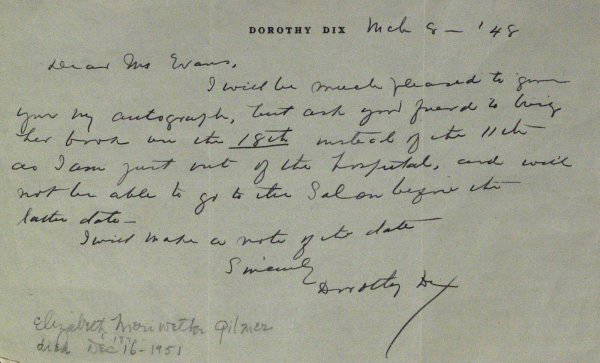 DOROTHY DIX Mch 8 - '48
Dear Ms Evans,
I will be much pleased to give
you my autograph, but ask your friend to bring
her book on the 18th instead of the 11th
as I am just out of the hospital, and will
not be able to go to the Salon before the
latter date -
I will make a note of the date
Sincerely
Dorothy Dix
Elizabeth Meriwether Gilmer
died Dec 16 - 1951